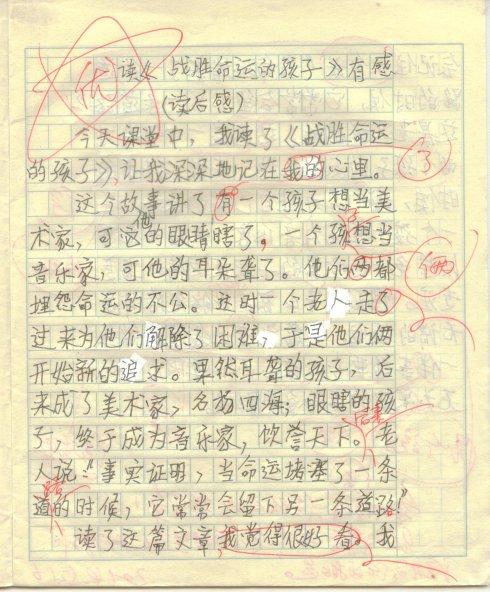 优
读《战胜命运的孩子》有感
(读后感)
今天课堂中，我读了《战胜命运
的孩子》，让我深深地记在我的心里。
了
这个故事讲了有一个孩子想当美
他 子
术家，可这的眼睛瞎了。一个孩想当
音乐家，可他的耳朵聋了。他们两都
俩
埋怨命运的不公。这时一个老人走了
过来为他们解除了困难，于是他们俩
开始新的追求。果然耳聋的孩子，后
来成了美术家，名扬四海；眼瞎的孩
子，终于成为音乐家，饮誉天下。老
人说：“事实证明，当命运堵塞了一条
道的时候，它常常会留下另一条道路！”
路
读了这篇文章，我觉得很好看。我